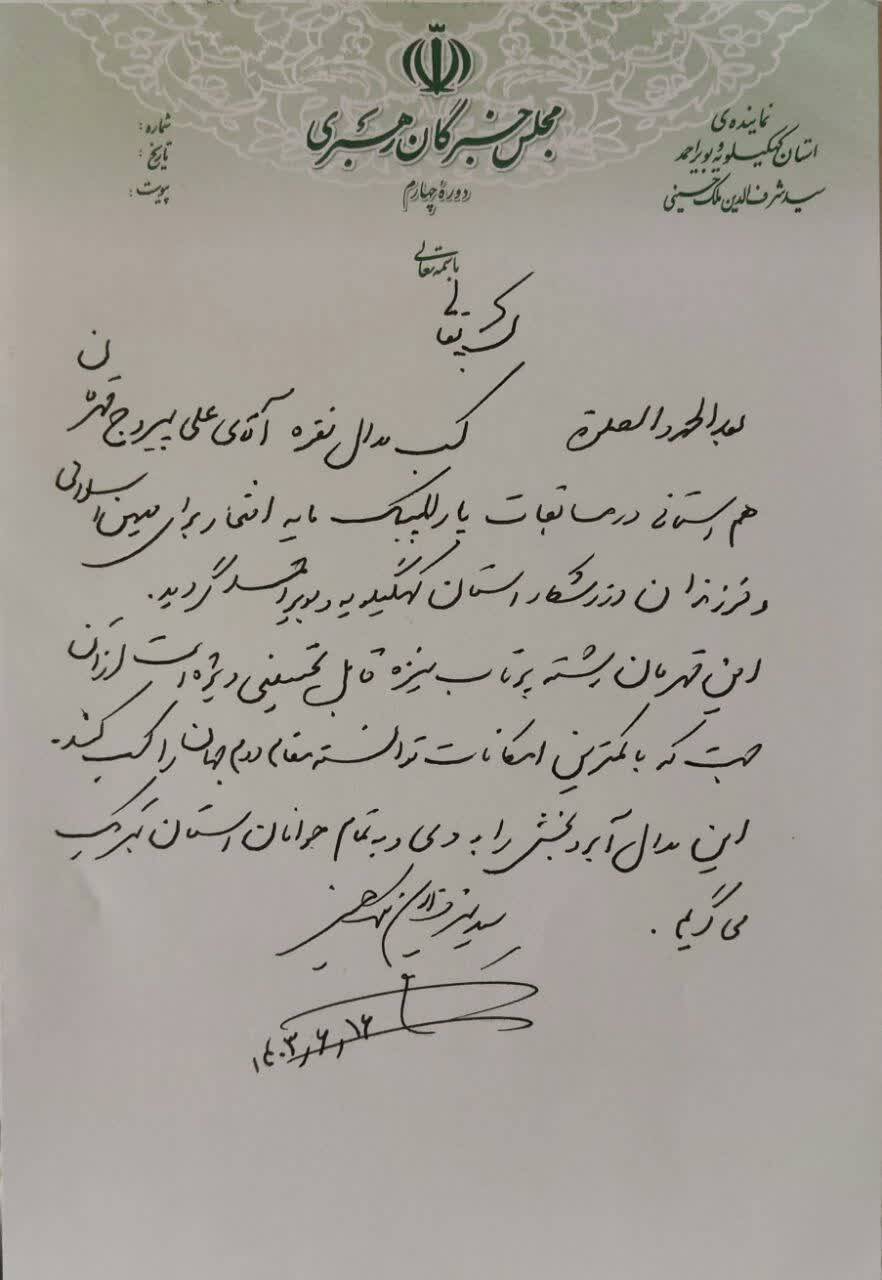 مجلس خبرگان رهبری
دورهٔ چهارم
نماینده‌ی
استان کهگیلویه و بویراحمد
سید شرف‌الدین ملک حسینی
شماره :
تاریخ :
پیوست :
باسمه تعالی
تعالی
بعد الحمد و الصلوة کسب مدال نقره آقای علی پیروج قهرمان
هم استانی در مسابقات پارالمپیک مایه افتخار برای میهن اسلامی
و فرزندان ورزشکار استان کهگیلویه و بویراحمد گردید.
این قهرمان رشته پرتاب نیزه قابل تحسینی ویژه است از آن
جهت که با کمترین امکانات توانسته مقام دوم جهان را کسب کند.
این مدال آبروبخش را به وی و به تمام جوانان استان تبریک
می گویم .
سید شرف الدین ملک حسینی
۱۴۰۳/۶/۱۶